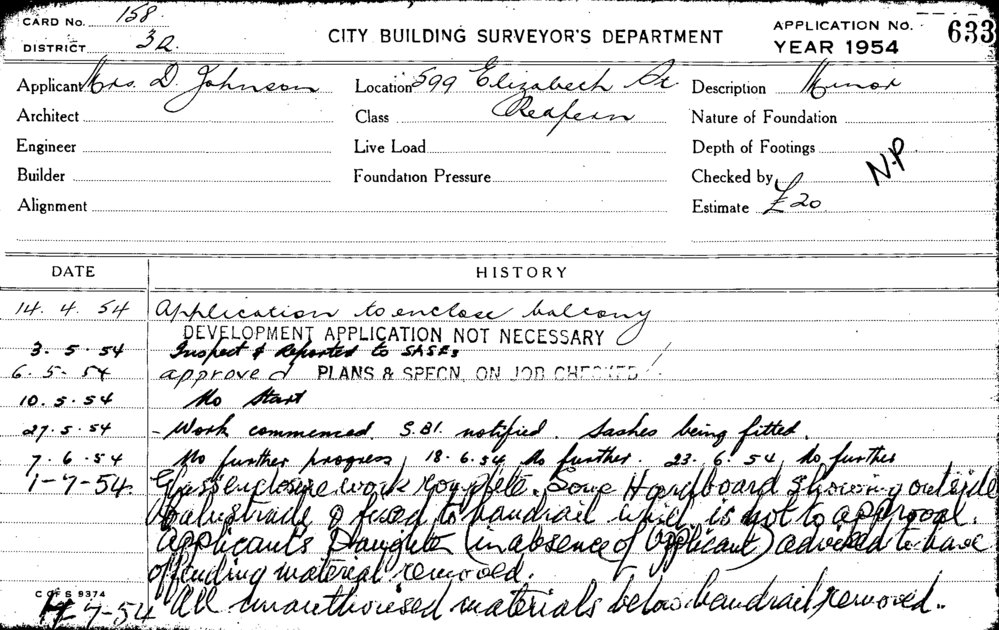 CARD No. 158
DISTRICT 3A
CITY BUILDING SURVEYOR'S DEPARTMENT
APPLICATION No. 633
YEAR 1954
Applicant Mrs. D. Johnson Location 599 Elizabeth St Description Minor
Architect Class Redfern Nature of Foundation
Engineer Live Load Depth of Footings
Builder Foundation Pressure Checked by N.P
Alignment Estimate £20
DATE HISTORY
14. 4. 54 Application to enclose balcony
DEVELOPMENT APPLICATION NOT NECESSARY
3. 5. 54 Inspect & Reported to
6. 5. 54 approved PLANS & SPECN. ON JOB CHECKED
10. 5. 54 No Start
27. 5. 54 - Work commenced. S.BI. notified. Sashes being fitted.
7. 6. 54 No further progress, 18. 6. 54 No further. 23. 6. 54, No further
1-7-54. Glass enclosure work complete. Some Hardboard showing outside
balustrade & fixed to handrail which is not to approval.
Applicant's Daughter (in absence of Applicant) advised to have
offending material removed.
C OF S 9374
7-54 All unauthorised materials below handrail removed.